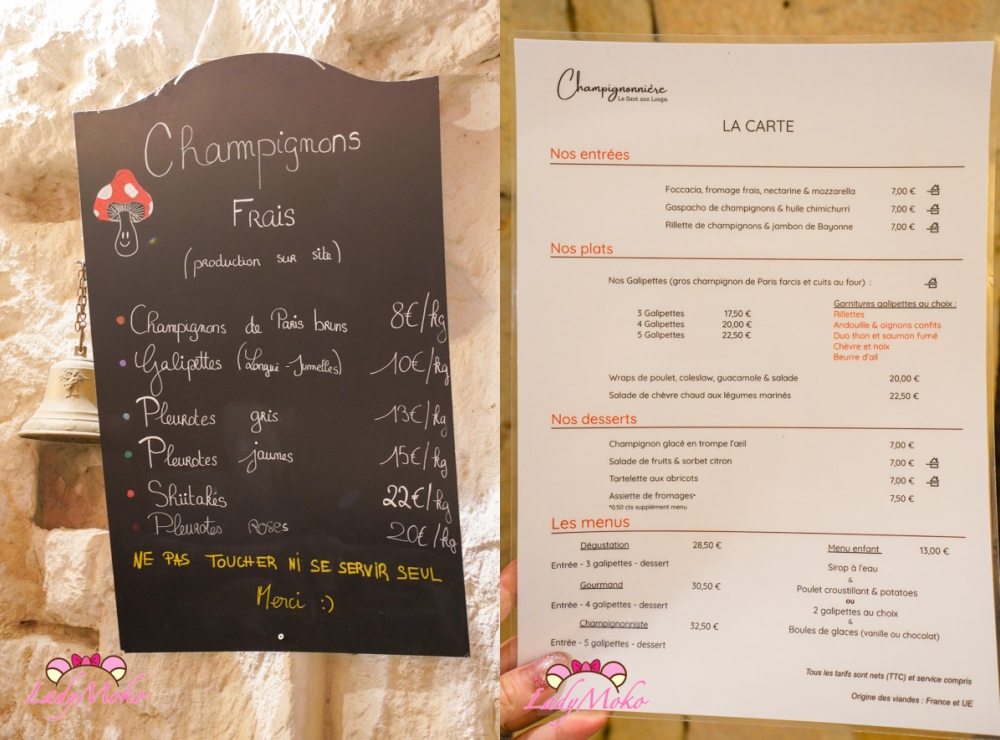 Champignons
Frais
(production sur site)
• Champignons de Paris bruns 8€/kg
• Galipettes (Longué - Jumelles) 10€/kg
• Pleurotes gris 13€/kg
• Pleurotes jaunes 15€/kg
• Shiitakés 22€/kg
Pleurotes Roses 20€/kg
NE PAS TOUCHER NI SE SERVIR SEUL
Merci :)
LadyMoko
Champignonnière
Le Saut aux Loups
LA CARTE
Nos entrées
Foccacia, fromage frais, nectarine & mozzarella 7,00 €
Gaspacho de champignons & huile chimichurri 7,00 €
Rillette de champignons & jambon de Bayonne 7,00 €
Nos plats
Nos Galipettes (gros champignon de Paris farcis et cuits au four) :
Garnitures galipettes au choix :
3 Galipettes 17,50 €
4 Galipettes 20,00 €
5 Galipettes 22,50 €
Rillettes
Andouille & oignons confits
Duo thon et saumon fumé
Chèvre et noix
Beurre d'ail
Wraps de poulet, coleslaw, guacamole & salade 20,00 €
Salade de chèvre chaud aux légumes marinés 22,50 €
Nos desserts
Champignon glacé en trompe l'œil 7,00 €
Salade de fruits & sorbet citron 7,00 €
Tartelette aux abricots 7,00 €
Assiette de fromages* 7,50 €
*0.50 cts supplément menu
Les menus
Dégustation 28,50 €
Entrée - 3 galipettes - dessert
Gourmand 30,50 €
Entrée - 4 galipettes - dessert
Champignonniste 32,50 €
Entrée - 5 galipettes - dessert
Menu enfant 13,00 €
Sirop à l'eau
&
Poulet croustillant & potatoes
ou
2 galipettes au choix
&
Boules de glaces (vanille ou chocolat)
Tous les tarifs sont nets (TTC) et service compris
Origine des viandes : France et UE
LadyMoko